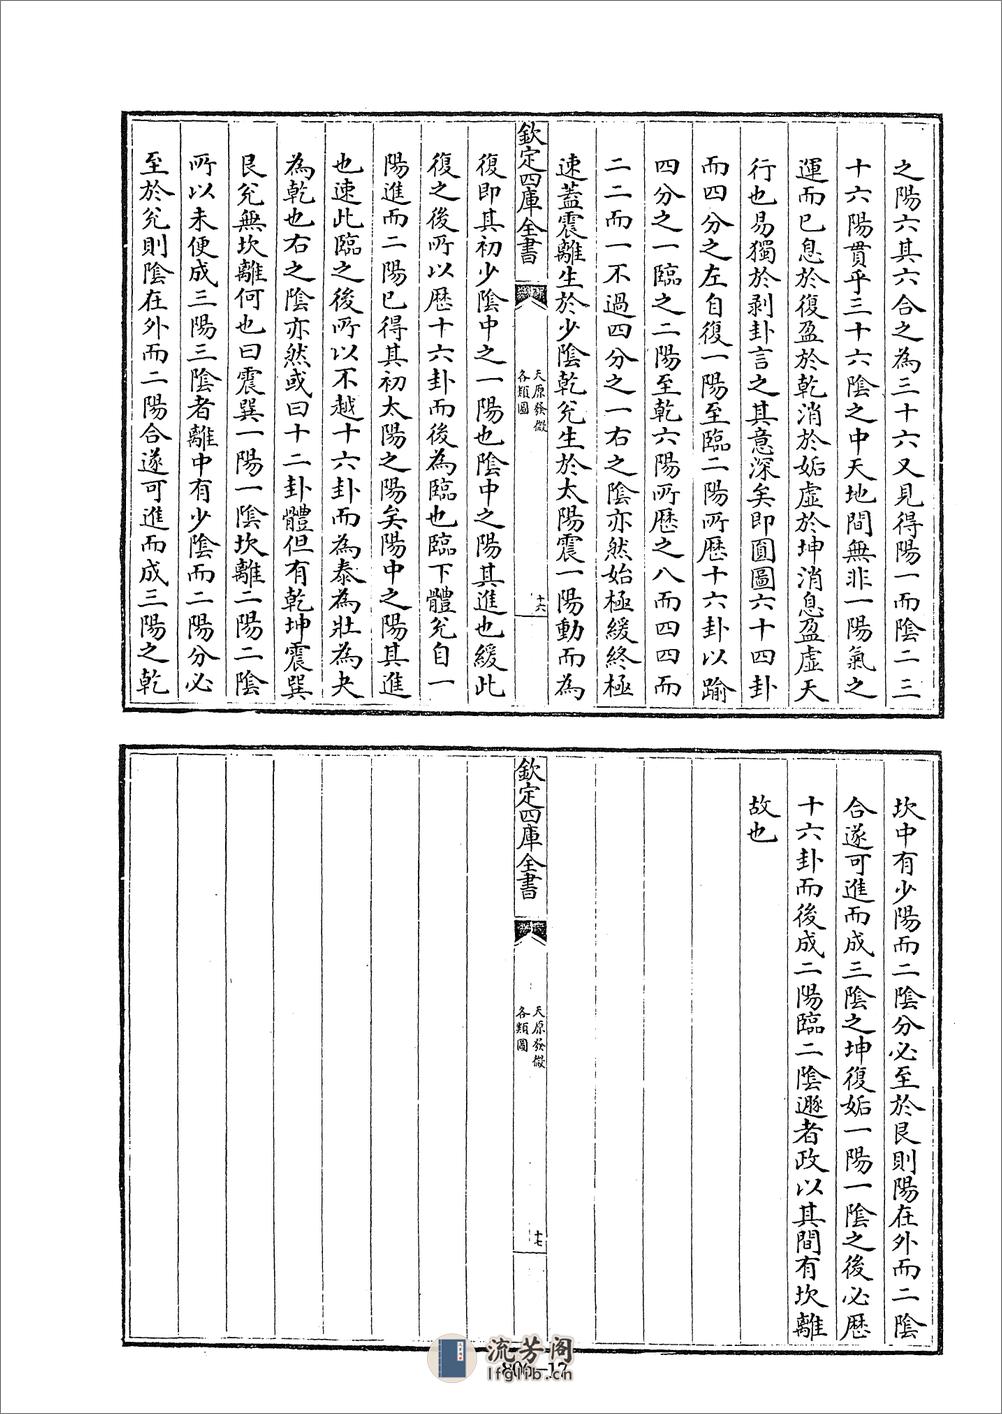 之陽六其六合之為三十六又見得陽一而陰二三
十六陽貫乎三十六陰之中天地間無非一陽氣之
運而已息於復盈於乾消於姤虛於坤消息盈虛天
行也易獨於剥卦言之其意深矣即圓圖六十四卦
而四分之左自復一陽至臨二陽所歷十六卦以踰
四分之一臨之二陽至乾六陽所歷之八而四四而
二二而一不過四分之一右之陰亦然始極緩終極
速蓋震離生於少陰乾兌生於太陽震一陽動而為
欽定四庫全書
天原發微
各類圖
十六
復即其初少陰中之一陽也陰中之陽其進也緩此
復之後所以歷十六卦而後為臨也臨下體兌自一
陽進而二陽已得其初太陽之陽矣陽中之陽其進
也速此臨之後所以不越十六卦而為泰為壯為夬
為乾也右之陰亦然或曰十二卦體但有乾坤震巽
艮兌無坎離何也曰震巽一陽一陰坎離二陽二陰
所以未便成三陽三陰者離中有少陰而二陽分必
至於兌則陰在外而二陽合遂可進而成三陽之乾
坎中有少陽而二陰分必至於艮則陽在外而二陰
合遂可進而成三陰之坤復姤一陽一陰之後必歷
十六卦而後成二陽臨二陰遯者政以其間有坎離
故也
欽定四庫全書
天原發微
各類圖
十七
流芳阁
lfglib.cn